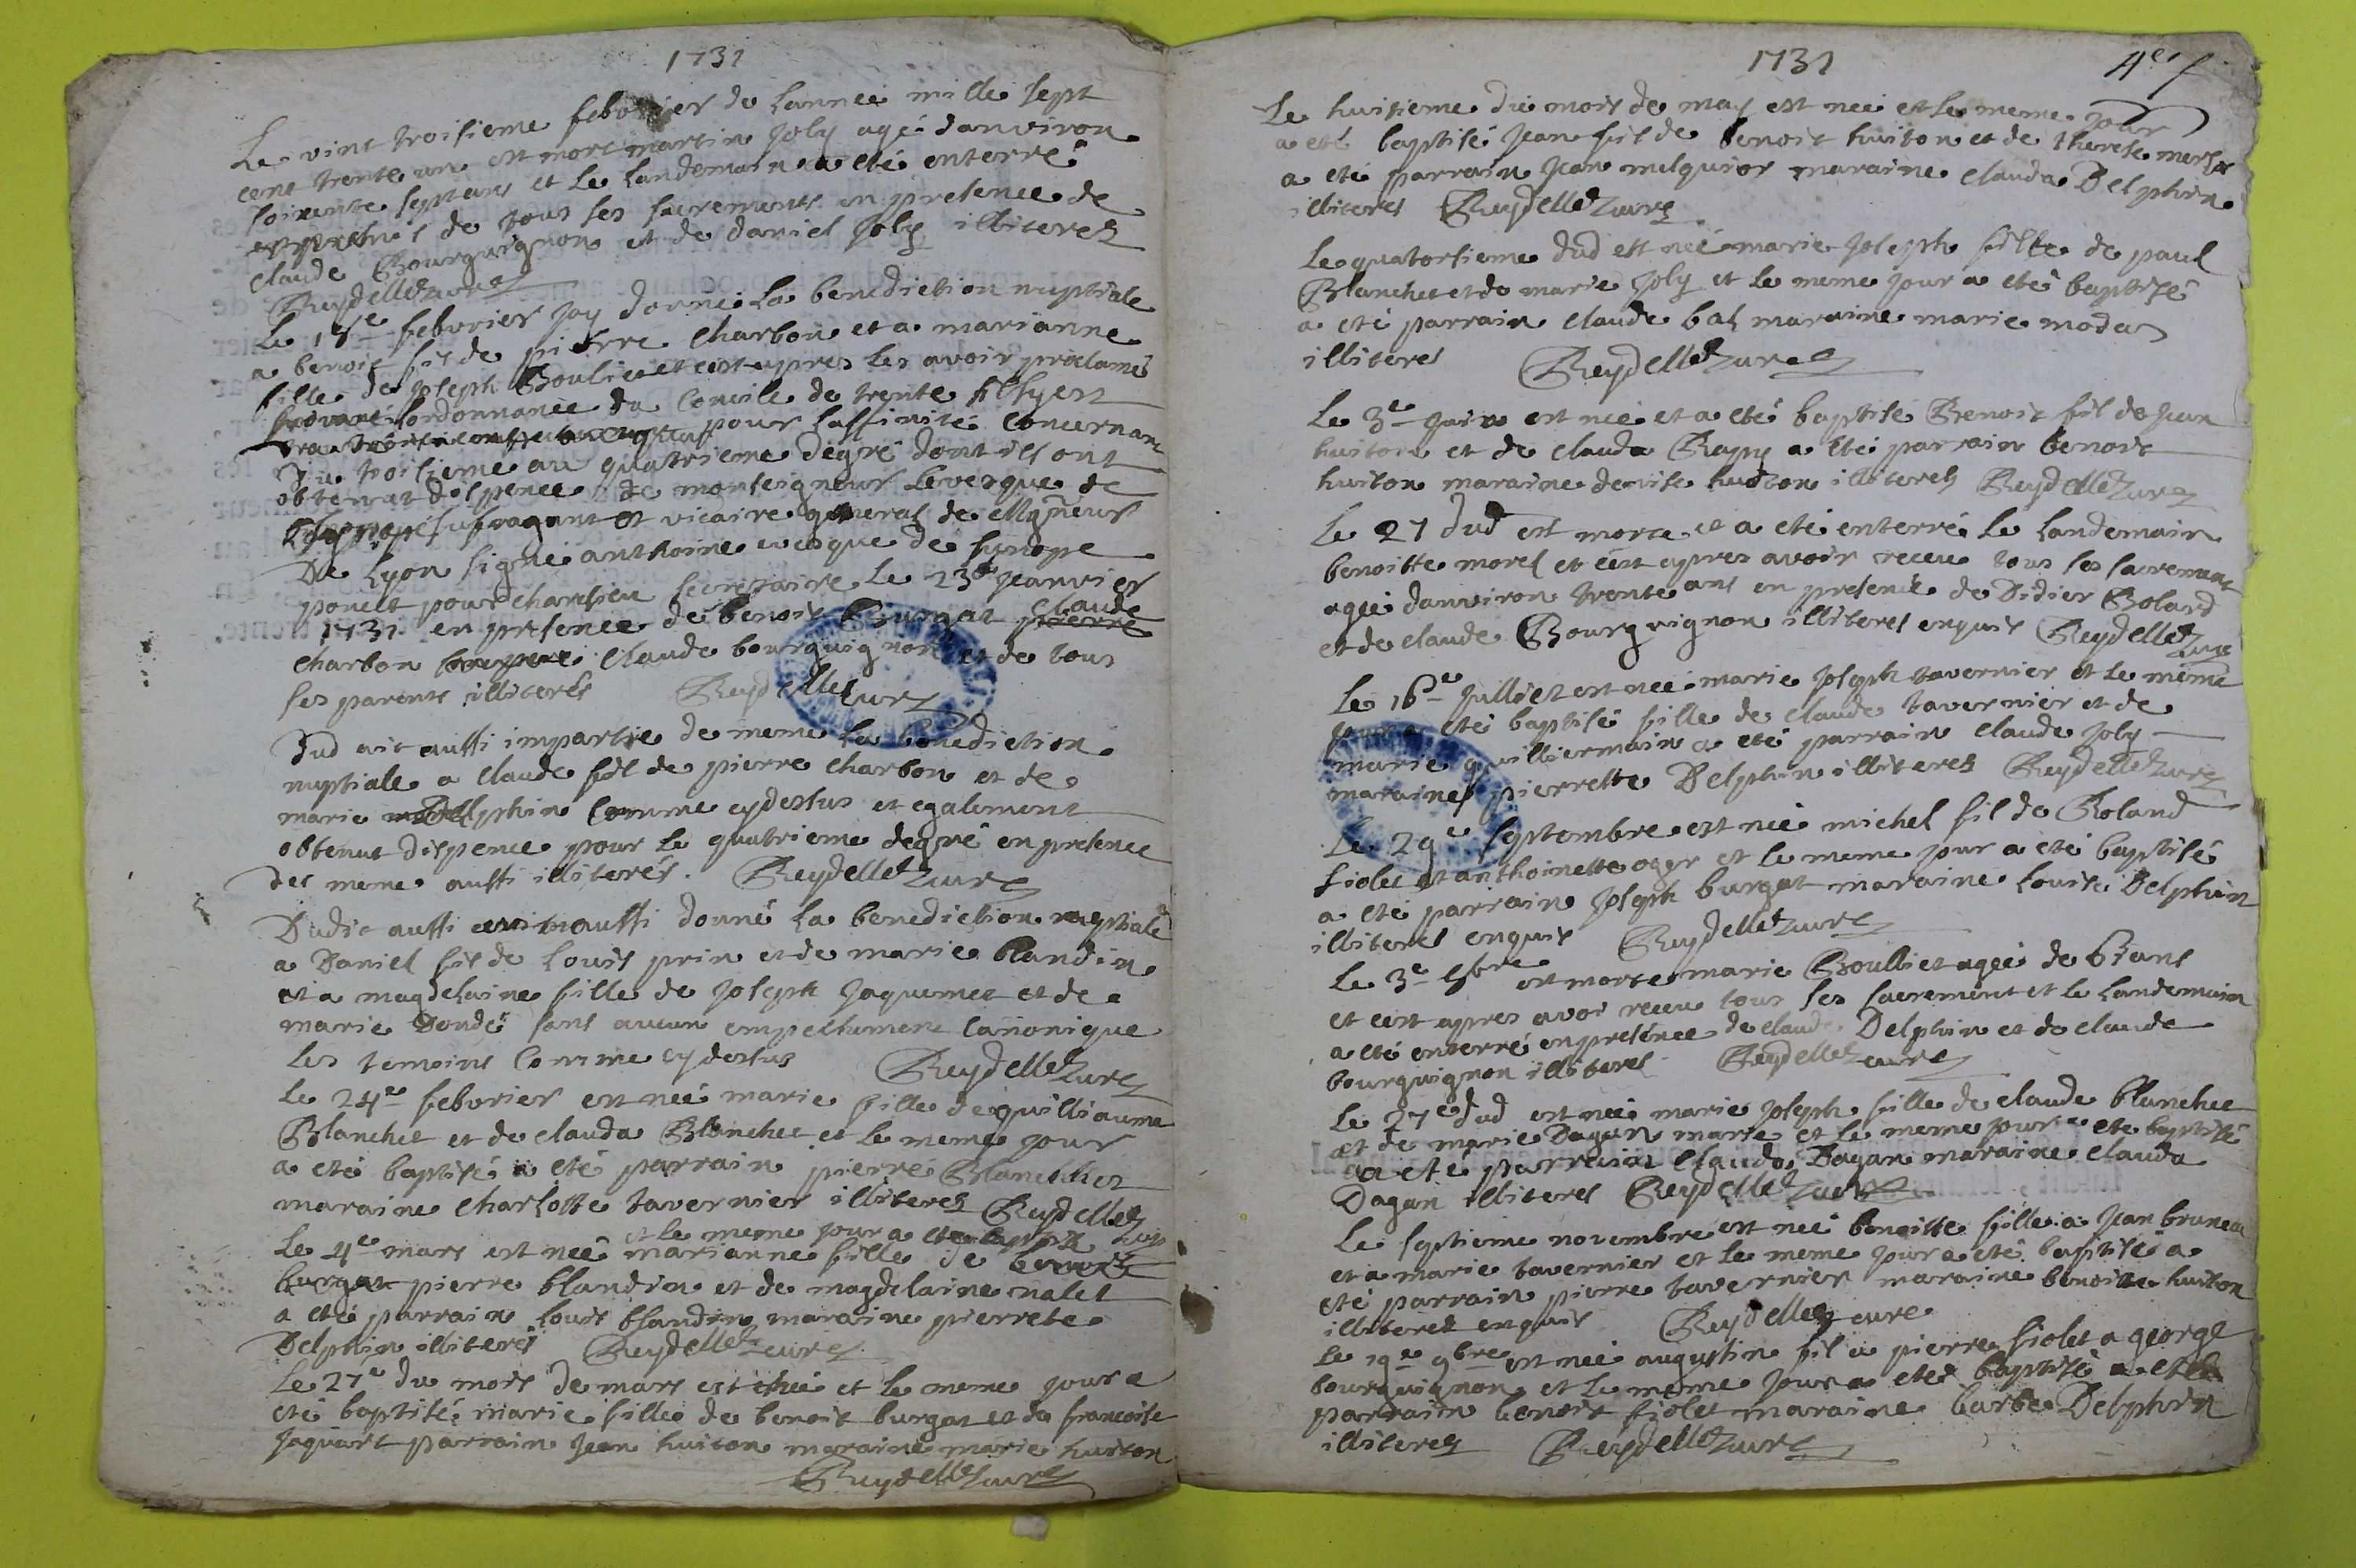 1731
Le vint troisieme febvrier de lannee mille sept
cent trente un est mort martin Joly agé danviron
soixente septans et le landemain a eté enterré
de tous ses sacrements en presence de
claude Bourguignon et de daniel Joly illiteres
Reydellet curé
Le febvrier jay donné la benediction nuptiale
a benoit fil de pierre Charbon et a marianne
fille de Joseph Boulliet et cest apres les avoir proclamés
lordonnance du Concile de trente
pour laffinité Concernant
troisieme au quatrieme degré dont ils ont
obtenut dispence de monseigneur levesque de
sufragant et vicaire general de
De Lyon signé anthoine evesque de synope
pour secretaire le 23e Jeanvier
1731 en presence de benoit Burgat pierre claude
Charbon Claude bourguignon et de tous
ses parents illiterés Reydellet curé
Dud ait aussi impartie de meme la benediction
nuptiale a Claude fil de pierre Charbon et de
marie Delphin Comme cydessus et egalement
obtenut dispence pour le quatrieme degré en presence
des meme aussi illiterés. Reydellet curé
Dudit aussi donné la benediction nuptiale
a Daniel fil de Louis prin et de marie blandin
et a magdelaine fille de Joseph Jaquemet et de
marie Dondé sans aucun empechement Canonique
les temoins Comme cydessus Reydellet curé
Le 24e febvrier est née marie fille de guilliaume
Blanchet et de clauda Blanchet et le meme jour
a eté baptisé a eté parrain pierre Blanchet
maraine Charlotte tavernier illiteres Reydellet curé
et le meme jour a eté baptisé
Le 4e mars est née marianne fille de benoit
burgat pierre blandin et de magdelaine malet
a eté parrain louis blandin maraine pierrete
Delphin illiterés Reydellet curé
Le 27e du mois de mars est née et le meme jour a
eté baptisé marie fille de benoit burgat et de francoise
Jaquart parrain Jean huiton maraine marie huiton
Reydellet curé
1731
Le huitieme du mois de may est née et le meme jour
a eté baptisé Jean fil de benoit huiton et de therese
a eté parrain Jean melquior maraine clauda Delphin
illiteres Reydellet curé
Le quatorsieme dud est née marie Joseph fille de paul
Blanchet et de marie Joly et le meme jour a eté baptisé
a eté parrain claude maraine marie modas
illiteres Reydellet curé
Le 3e juin est née et a eté baptisé Benoit fil de Jean
huiton et de clauda Rapy a eté parrain benoit
huiton maraine denise huiton illiteres Reydellet curé
Le 27 dud est morte et a eté enterré le landemain
benoitte morel et cest apres avoir receu tous ses sacrement
agée danviron trente ans en presence de Didier Bolard
et de claude Bourguignon illiteres enquis Reydellet curé
Le 16e Julliet est née marie Joseph tavernier et le meme
jour a eté baptisé fille de claude tavernier et de
marie guilliermain a eté parrain claude Joly
maraine pierrette Delphin illiteres Reydellet curé
Le 29e septembre est née michel fil de Roland
fiolet et anthoinette oger et le meme jour a eté baptisé
a eté parrain Joseph burgat maraine louise Delphin
illiteres enquis Reydellet curé
Le 3e est morte marie Boulliet agée de ans
et cest apres avoir receu tous ses sacrement et le landemain
a eté enterré en presence de claude Delphin et de claude
bourguignon illiteres Reydellet curé
Le 27e dud est née marie Joseph fille de claude blanchet
et de marie Dagan et le meme jour a eté baptisé
a eté parrain Claude Dagan maraine clauda
Dagan illiteres Reydellet curé
Le septieme novembre est née benoitte fille a Jean bruneau
et a marie tavernier et le meme jour a eté baptisé a
eté parrain pierre tavernier maraine benoitte huiton
illiteres enquis Reydellet curé
Le 19e 9bre est née augustin fil a pierre fiolet a george
bourguignon et le meme jour a eté baptisé a eté
parrain benoit fiolet maraine barbe Delphin
illiteres Reydellet curé